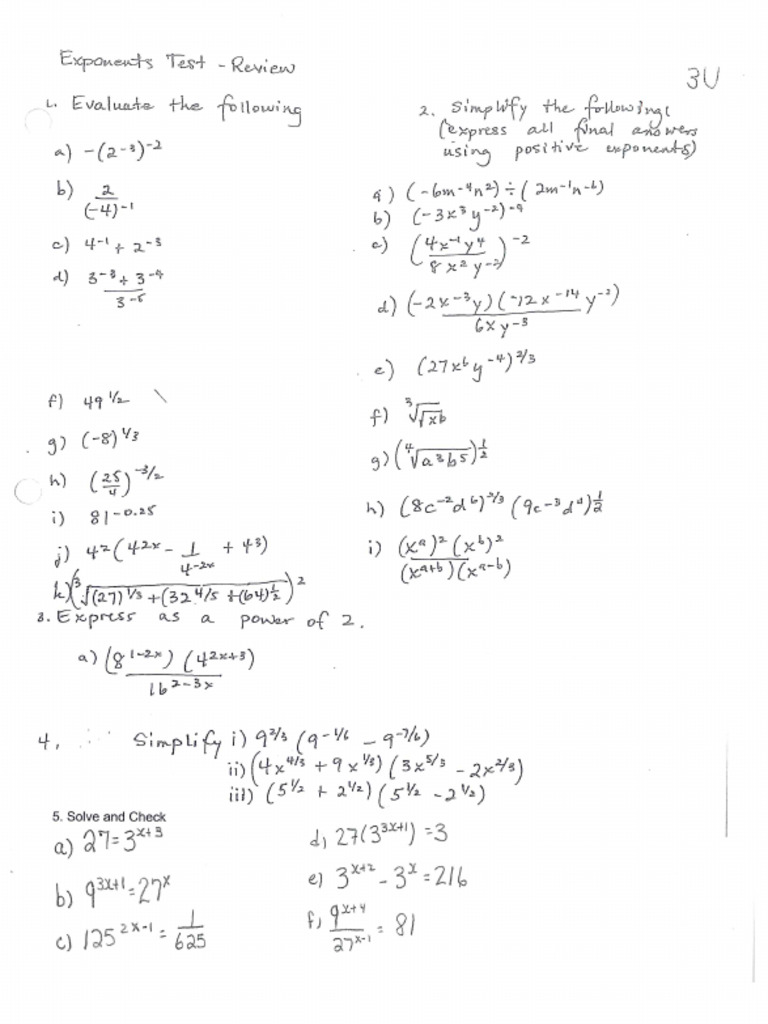 Exponents Test - Review
3U
1. Evaluate the following
a) -(2⁻³)⁻²
b) 2/(-4)⁻¹
c) 4⁻¹ + 2⁻³
d) (3⁻³ + 3⁻⁴)/3⁻⁵
f) 49^(1/2)
g) (-8)^(1/3)
h) (25/4)^(-3/2)
i) 81^(-0.25)
j) 4²(4^(2x) - 1/4^(-2x) + 4³)
k) (³√((27)^(1/3) + (32^(4/5) + (64)^(1/2)))²
2. Simplify the following:
(express all final answers
using positive exponents)
a) (-6m⁻⁴n²) ÷ (2m⁻¹n⁻⁶)
b) (-3x³y⁻²)⁻⁴
c) (4x⁻¹y⁴/8x²y⁻²)⁻²
d) (-2x⁻³y)(-12x⁻¹⁴y⁻²)/6xy⁻³
e) (27x⁶y⁻⁴)^(2/3)
f) ³√√x6
g) (⁴√a³b⁵)^(1/2)
h) (8c⁻²d⁶)^(2/3) (9c⁻³d⁴)^(1/2)
i) (x^a)² (x^b)²/(x^(a+b))(x^(a-b))
3. Express as a power of 2.
a) (8^(1-2x)) (4^(2x+3))/16^(2-3x)
4. Simplify i) 9^(2/3) (9^(-1/6) - 9^(-7/6))
ii) (4x^(4/3) + 9x^(1/3)) (3x^(5/3) - 2x^(2/3))
iii) (5^(1/2) + 2^(1/2)) (5^(1/2) - 2^(1/2))
5. Solve and Check
a) 27 = 3^(x+3)
b) 9^(3x+1) = 27^x
c) 125^(2x-1) = 1/625
d) 27(3^(3x+1)) = 3
e) 3^(x+2) - 3^x = 216
f) 9^(x+4)/27^(x-1) = 81